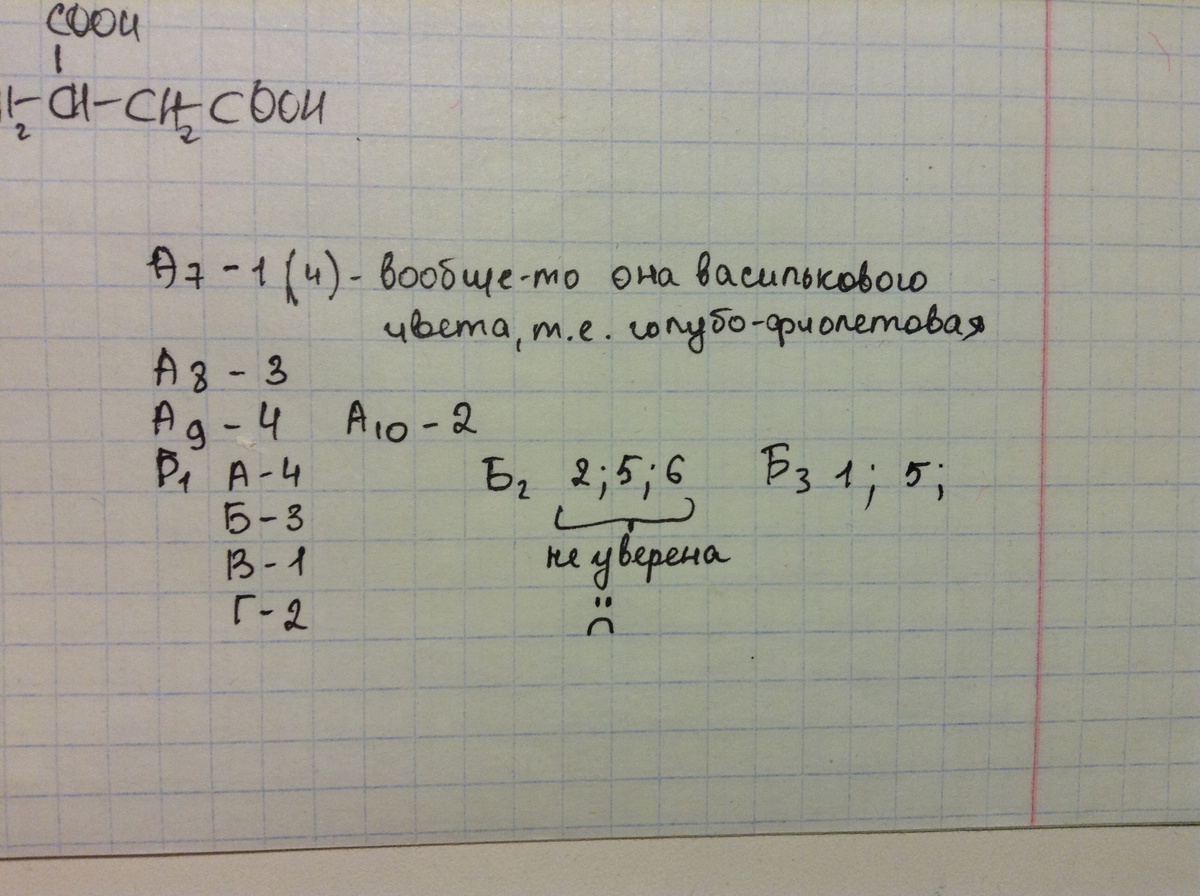 COOH
H₂-CH-CH₂-COOH
А7 - 1 (4) - вообще-то она василькового
цвета, т.е. голубо-фиолетовая
А8 - 3
А9 - 4 А10 - 2
Б1 А-4 Б2 2; 5; 6 Б3 1; 5;
Б-3
В-1 не уверена
Г-2